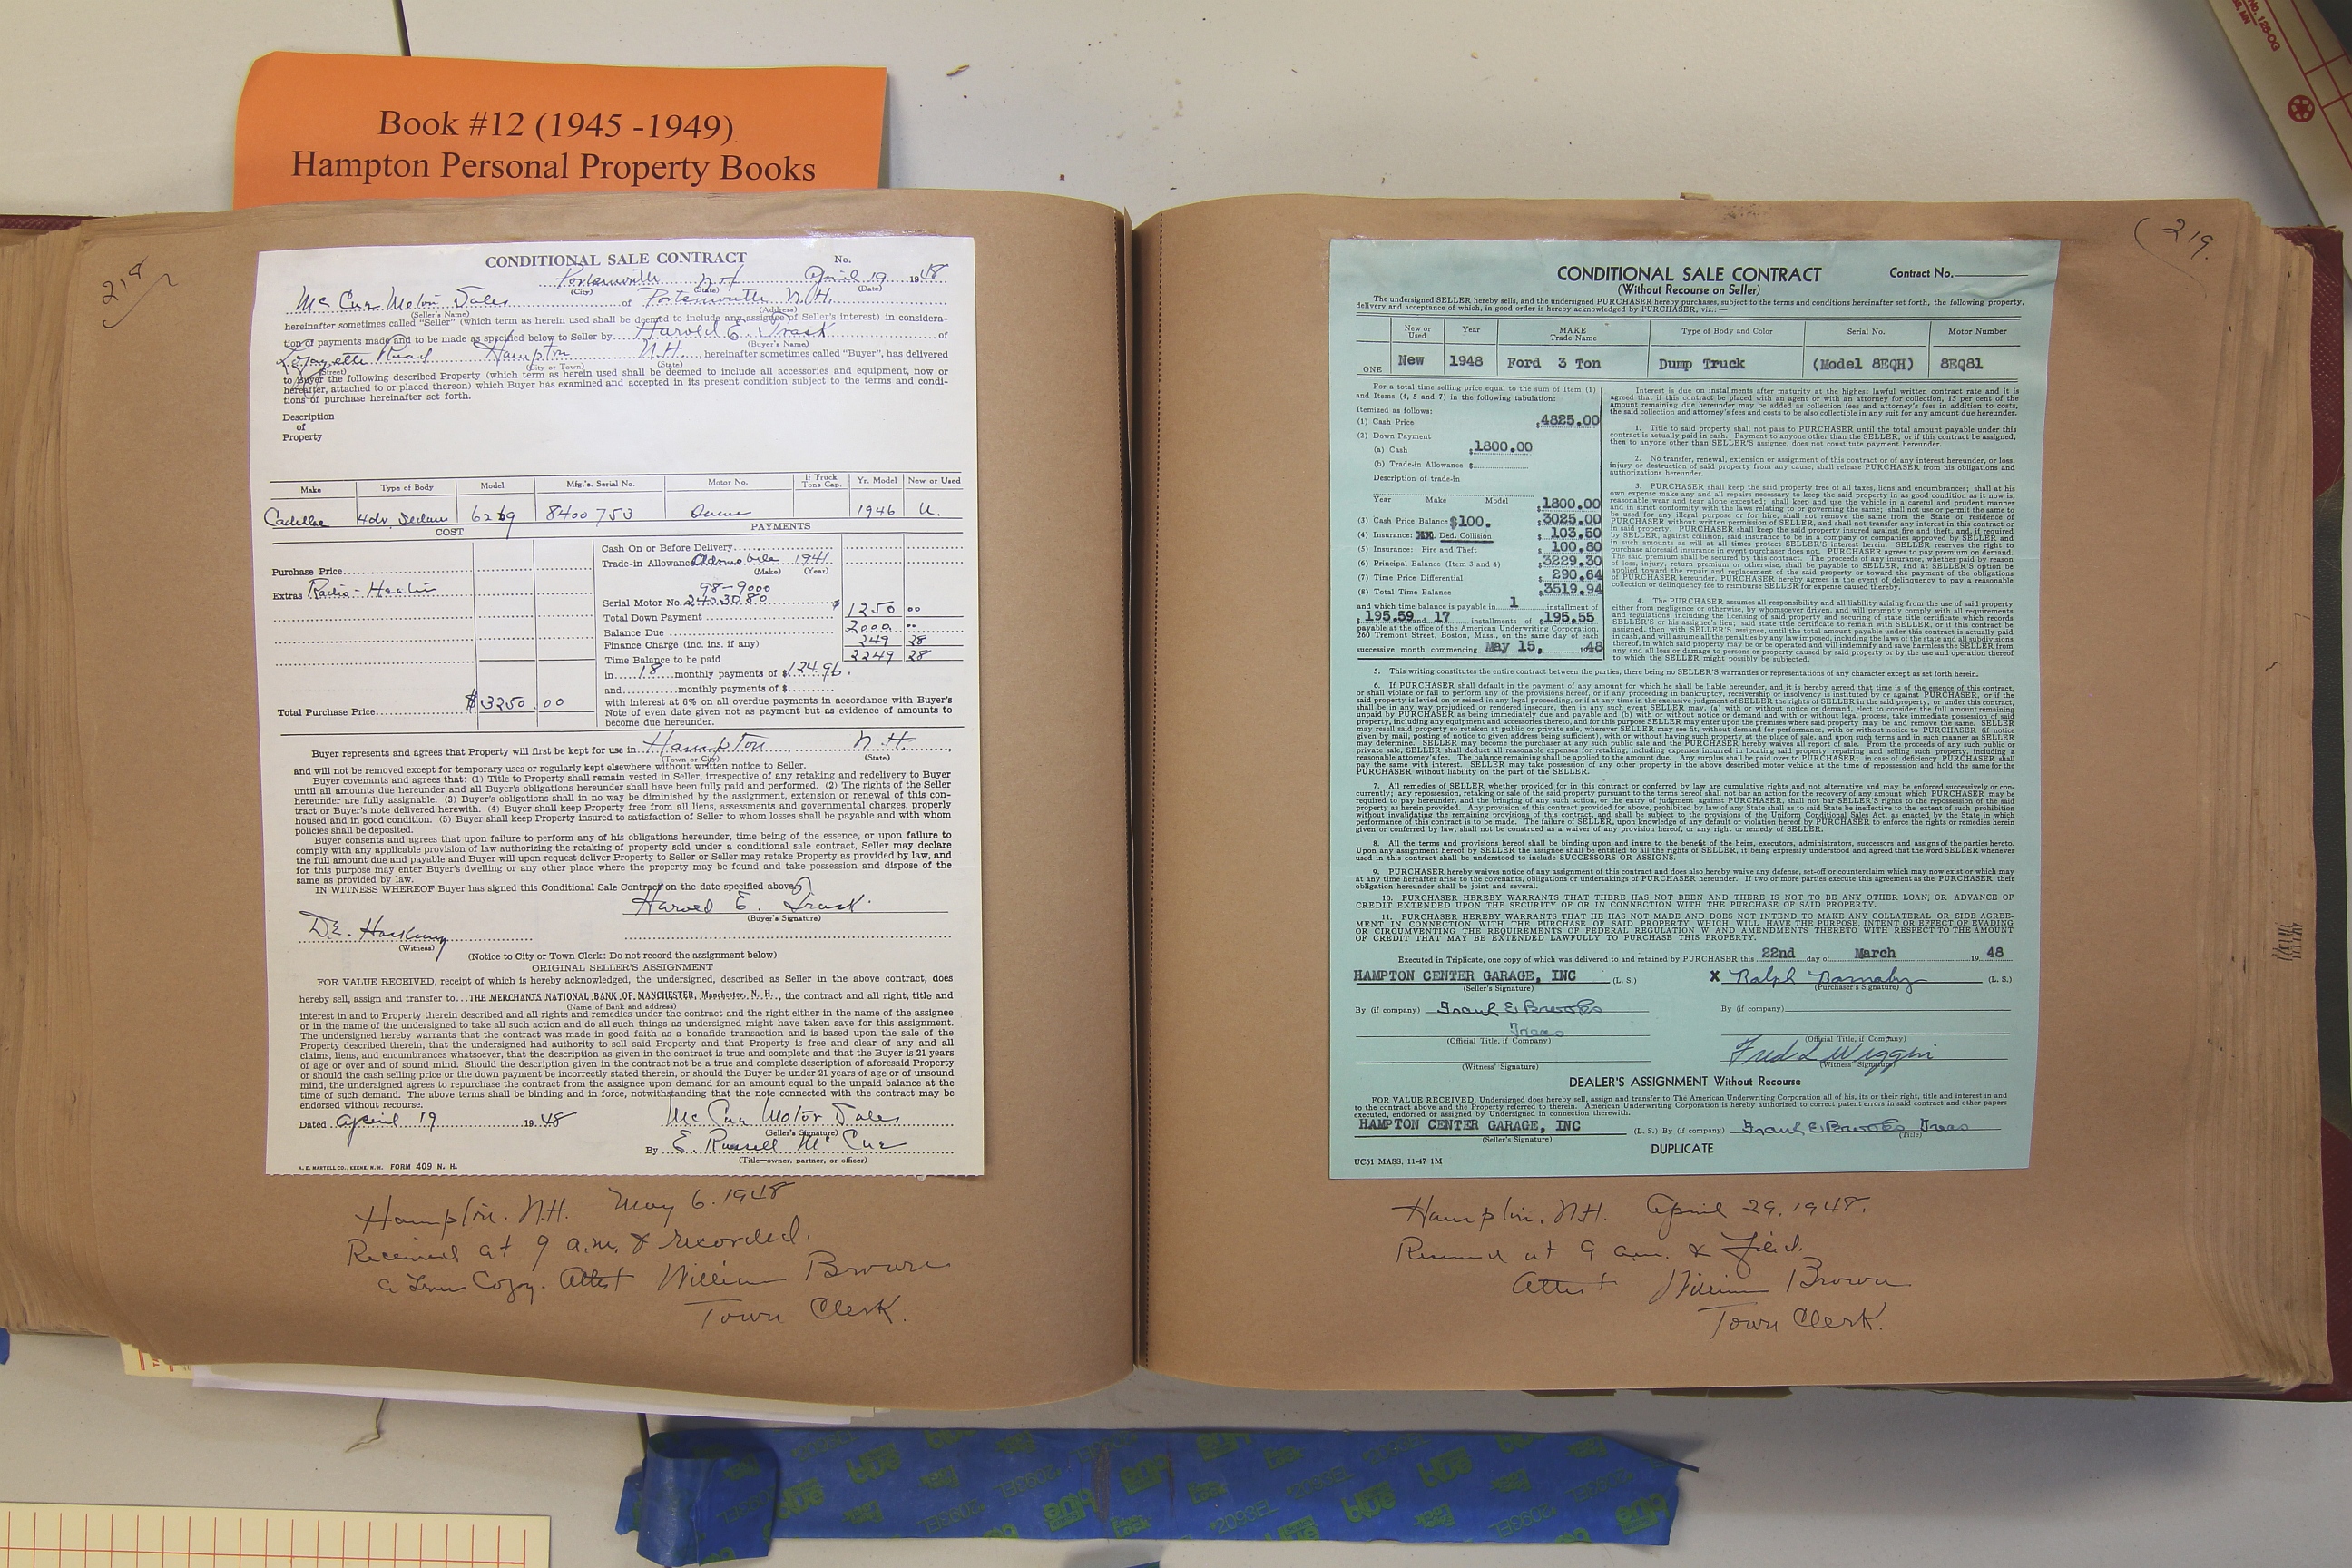 Book #12 (1945 -1949)
Hampton Personal Property Books
218
CONDITIONAL SALE CONTRACT
No.
Portsmouth N.H. April 19 1948
(City) (State) (Date)
Mc Cue Motor Sales of Portsmouth N.H.
(Seller's Name) (Address)
hereinafter sometimes called "Seller" (which term as herein used shall be deemed to include any assignee of Seller's interest) in considera-
tion of payments made and to be made as specified below to Seller by Harold E. Trask of
(Buyer's Name)
Lafayette Road Hampton N.H., hereinafter sometimes called "Buyer", has delivered
(Street) (City or Town) (State)
to Buyer the following described Property (which term as herein used shall be deemed to include all accessories and equipment, now or
hereafter, attached to or placed thereon) which Buyer has examined and accepted in its present condition subject to the terms and condi-
tions of purchase hereinafter set forth.
Description
of
Property
Make Type of Body Model Mfg.'s. Serial No. Motor No. If Truck Tons Cap. Yr. Model New or Used
Cadillac 4dr. Sedan 6269 8400753 Same 1946 U.
COST PAYMENTS
Cash On or Before Delivery
Trade-in Allowance Oldsmobile 1941
(Make) (Year)
Purchase Price
98-9000
Extras Radio - Heater
Serial Motor No. 2403080 $ 1250 00
Total Down Payment
Balance Due 2000 00
Finance Charge (inc. ins. if any) 249 28
Time Balance to be paid 2249 28
in 18 monthly payments of $124.96.
and monthly payments of $
with interest at 6% on all overdue payments in accordance with Buyer's
Total Purchase Price $3250.00
Note of even date given not as payment but as evidence of amounts to
become due hereunder.
Buyer represents and agrees that Property will first be kept for use in Hampton, N.H.,
(Town or City) (State)
and will not be removed except for temporary uses or regularly kept elsewhere without written notice to Seller.
Buyer covenants and agrees that: (1) Title to Property shall remain vested in Seller, irrespective of any retaking and redelivery to Buyer
until all amounts due hereunder and all Buyer's obligations hereunder shall have been fully paid and performed. (2) The rights of the Seller
hereunder are fully assignable. (3) Buyer's obligations shall in no way be diminished by the assignment, extension or renewal of this con-
tract or Buyer's note delivered herewith. (4) Buyer shall keep Property free from all liens, assessments and governmental charges, properly
housed and in good condition. (5) Buyer shall keep Property insured to satisfaction of Seller to whom losses shall be payable and with whom
policies shall be deposited.
Buyer consents and agrees that upon failure to perform any of his obligations hereunder, time being of the essence, or upon failure to
comply with any applicable provision of law authorizing the retaking of property sold under a conditional sale contract, Seller may declare
the full amount due and payable and Buyer will upon request deliver Property to Seller or Seller may retake Property as provided by law, and
for this purpose may enter Buyer's dwelling or any other place where the property may be found and take possession and dispose of the
same as provided by law.
IN WITNESS WHEREOF Buyer has signed this Conditional Sale Contract on the date specified above.
Harold E. Trask.
(Buyer's Signature)
D.E.
(Witness)
(Notice to City or Town Clerk: Do not record the assignment below)
ORIGINAL SELLER'S ASSIGNMENT
FOR VALUE RECEIVED, receipt of which is hereby acknowledged, the undersigned, described as Seller in the above contract, does
hereby sell, assign and transfer to...THE MERCHANTS NATIONAL BANK OF MANCHESTER, Manchester, N. H., the contract and all right, title and
(Name of Bank and address)
interest in and to Property therein described and all rights and remedies under the contract and the right either in the name of the assignee
or in the name of the undersigned to take all such action and do all such things as undersigned might have taken save for this assignment.
The undersigned hereby warrants that the contract was made in good faith as a bonafide transaction and is based upon the sale of the
Property described therein, that the undersigned had authority to sell said Property and that Property is free and clear of any and all
claims, liens, and encumbrances whatsoever, that the description as given in the contract is true and complete and that the Buyer is 21 years
of age or over and of sound mind. Should the description given in the contract not be a true and complete description of aforesaid Property
or should the cash selling price or the down payment be incorrectly stated therein, or should the Buyer be under 21 years of age or of unsound
mind, the undersigned agrees to repurchase the contract from the assignee upon demand for an amount equal to the unpaid balance at the
time of such demand. The above terms shall be binding and in force, notwithstanding that the note connected with the contract may be
endorsed without recourse.
Dated April 19 1948 Mc Cue Motor Sales
(Seller's Signature)
By E. Russell McCue
(Title—owner, partner, or officer)
A. E. MARTELL CO., KEENE, N. H. FORM 409 N. H.
Hampton. N.H. May 6. 1948
Received at 9 a.m. & recorded.
a True Copy. Attest William Brown
Town Clerk.
219.
CONDITIONAL SALE CONTRACT Contract No.
(Without Recourse on Seller)
The undersigned SELLER hereby sells, and the undersigned PURCHASER hereby purchases, subject to the terms and conditions hereinafter set forth, the following property,
delivery and acceptance of which, in good order is hereby acknowledged by PURCHASER, viz.:—
New or Used Year MAKE Trade Name Type of Body and Color Serial No. Motor Number
ONE New 1948 Ford 3 Ton Dump Truck (Model 8EQH) 8EQ81
For a total time selling price equal to the sum of Item (1)
and Items (4, 5 and 7) in the following tabulation:
Itemized as follows:
(1) Cash Price $4825.00
(2) Down Payment
(a) Cash $1800.00
(b) Trade-in Allowance $
Description of trade-in
Year Make Model $1800.00
(3) Cash Price Balance $100. $3025.00
(4) Insurance: XXX Ded. Collision $ 103.50
(5) Insurance: Fire and Theft $ 100.80
(6) Principal Balance (Item 3 and 4) $3229.30
(7) Time Price Differential $ 290.64
(8) Total Time Balance $3519.94
and which time balance is payable in 1 installment of
$195.59 and 17 installments of $195.55
payable at the office of the American Underwriting Corporation,
260 Tremont Street, Boston, Mass., on the same day of each
successive month commencing May 15, 1948
Interest is due on installments after maturity at the highest lawful written contract rate and it is
agreed that if this contract be placed with an agent or with an attorney for collection, 15 per cent of the
amount remaining due hereunder may be added as collection fees and attorney's fees in addition to costs,
the said collection and attorney's fees and costs to be also collectible in any suit for any amount due hereunder.
1. Title to said property shall not pass to PURCHASER until the total amount payable under this
contract is actually paid in cash. Payment to anyone other than the SELLER, or if this contract be assigned,
then to anyone other than SELLER'S assignee, does not constitute payment hereunder.
2. No transfer, renewal, extension or assignment of this contract or of any interest hereunder, or loss,
injury or destruction of said property from any cause, shall release PURCHASER from his obligations and
authorizations hereunder.
3. PURCHASER shall keep the said property free of all taxes, liens and encumbrances; shall at his
own expense make any and all repairs necessary to keep the said property in as good condition as it now is,
reasonable wear and tear alone excepted; shall keep and use the vehicle in a careful and prudent manner
and in strict conformity with the laws relating to or governing the same; shall not use or permit the same to
be used for any illegal purpose or for hire, shall not remove the same from the State or residence of
PURCHASER without written permission of SELLER, and shall not transfer any interest in this contract or
in said property. PURCHASER shall keep the said property insured against fire and theft, and, if required
by SELLER, against collision, said insurance to be in a company or companies approved by SELLER and
in such amounts as will at all times protect SELLER'S interest herein. SELLER reserves the right to
purchase aforesaid insurance in event purchaser does not. PURCHASER agrees to pay premium on demand.
The said premium shall be secured by this contract. The proceeds of any insurance, whether paid by reason
of loss, injury, return premium or otherwise, shall be payable to SELLER, and at SELLER'S option be
applied toward the repair and replacement of the said property or toward the payment of the obligations
of PURCHASER hereunder. PURCHASER hereby agrees in the event of delinquency to pay a reasonable
collection or delinquency fee to reimburse SELLER for expense caused thereby.
4. The PURCHASER assumes all responsibility and all liability arising from the use of said property
either from negligence or otherwise, by whomsoever driven, and will promptly comply with all requirements
and regulations, including the licensing of said property and securing of state title certificate which records
SELLER'S or his assignee's lien; said state title certificate to remain with SELLER, or if this contract be
assigned, then with SELLER'S assignee, until the total amount payable under this contract is actually paid
in cash, and will assume all the penalties by law imposed, including the laws of the state and all subdivisions
thereof, in which said property may be or be operated and will indemnify and save harmless the SELLER from
any and all loss or damage to persons or property caused by said property or by the use and operation thereof
to which the SELLER might possibly be subjected.
5. This writing constitutes the entire contract between the parties, there being no SELLER'S warranties or representations of any character except as set forth herein.
6. If PURCHASER shall default in the payment of any amount for which he shall be liable hereunder, and it is hereby agreed that time is of the essence of this contract,
PURCHASER without liability on the part of the SELLER.
7. All remedies of SELLER whether provided for in this contract or conferred by law are cumulative rights and not alternative and may be enforced successively or con-
given or conferred by law, shall not be construed as a waiver of any provision hereof, or any right or remedy of SELLER.
8. All the terms and provisions hereof shall be binding upon and inure to the benefit of the heirs, executors, administrators, successors and assigns of the parties hereto.
Upon any assignment hereof by SELLER the assignee shall be entitled to all the rights of SELLER, it being expressly understood and agreed that the word SELLER whenever
used in this contract shall be understood to include SUCCESSORS OR ASSIGNS.
9. PURCHASER hereby waives notice of any assignment of this contract and does also hereby waive any defense, set-off or counterclaim which may now exist or which may
at any time hereafter arise to the covenants, obligations or undertakings of PURCHASER hereunder. If two or more parties execute this agreement as the PURCHASER their
obligation hereunder shall be joint and several.
10. PURCHASER HEREBY WARRANTS THAT THERE HAS NOT BEEN AND THERE IS NOT TO BE ANY OTHER LOAN, OR ADVANCE OF
CREDIT EXTENDED UPON THE SECURITY OF OR IN CONNECTION WITH THE PURCHASE OF SAID PROPERTY.
11. PURCHASER HEREBY WARRANTS THAT HE HAS NOT MADE AND DOES NOT INTEND TO MAKE ANY COLLATERAL OR SIDE AGREE-
MENT IN CONNECTION WITH THE PURCHASE OF SAID PROPERTY WHICH WILL HAVE THE PURPOSE, INTENT OR EFFECT OF EVADING
OR CIRCUMVENTING THE REQUIREMENTS OF FEDERAL REGULATION W AND AMENDMENTS THERETO WITH RESPECT TO THE AMOUNT
OF CREDIT THAT MAY BE EXTENDED LAWFULLY TO PURCHASE THIS PROPERTY.
Executed in Triplicate, one copy of which was delivered to and retained by PURCHASER this 22nd day of March 19 48
HAMPTON CENTER GARAGE, INC (L. S.) X Ralph Barnaby (L. S.)
(Seller's Signature) (Purchaser's Signature)
By (if company) Frank E Brooks By (if company)
Treas
(Official Title, if Company) (Official Title, if Company)
Fred L Wiggin
(Witness' Signature) (Witness' Signature)
DEALER'S ASSIGNMENT Without Recourse
FOR VALUE RECEIVED, Undersigned does hereby sell, assign and transfer to The American Underwriting Corporation all of his, its or their right, title and interest in and
to the contract above and the Property referred to therein. American Underwriting Corporation is hereby authorized to correct patent errors in said contract and other papers
executed, endorsed or assigned by Undersigned in connection therewith.
HAMPTON CENTER GARAGE, INC (L. S.) By (if company) Frank E Brooks Treas
(Seller's Signature) (Title)
DUPLICATE
UC51 MASS. 11-47 1M
Hampton, N.H. April 29, 1948.
Received at 9 a.m. & Filed.
Attest William Brown
Town Clerk.